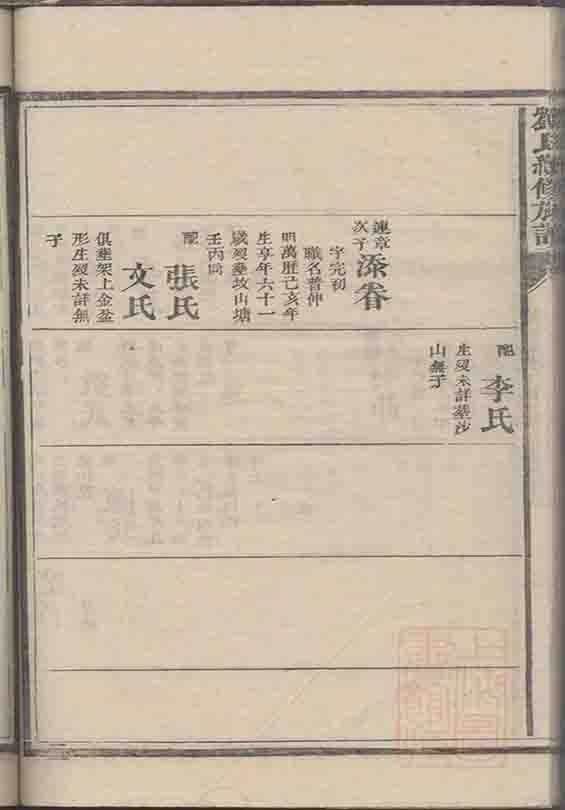 劉氏續修族譜
連章
次子
添眷
字完初
職名普仲
明萬歷己亥年
生享年六十一
歲歿塟坟山塘
壬丙向
配
張氏
文氏
俱塟架上金盆
形生歿未詳無
子
配
李氏
生歿未詳塟沙
山無子